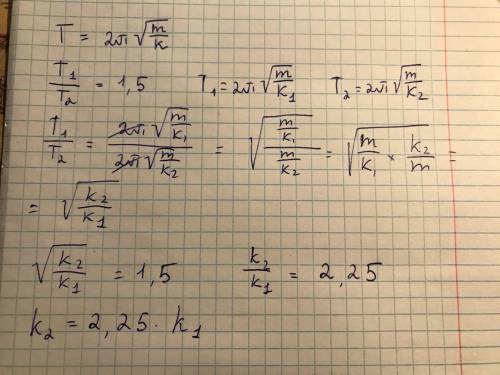 T = 2π√(m/k)
T₁/T₂ = 1,5 T₁=2π√(m/k₁) T₂=2π√(m/k₂)
T₁/T₂ = (2π√(m/k₁))/(2π√(m/k₂)) = √((m/k₁)/(m/k₂)) = √(m/k₁ × k₂/m) =
= √(k₂/k₁)
√(k₂/k₁) = 1,5 k₂/k₁ = 2,25
k₂ = 2,25 · k₁